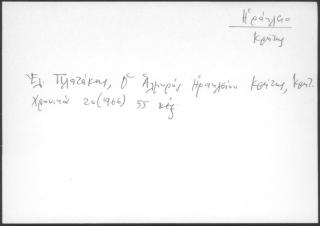 Ἡράκλειο
Κρήτης
Ἐλ. Πλατάκης, Ὁ Ἀλμυρὸς Ἡρακλείου Κρήτης, Κρητ.
Χρονικά 20 (1966) 55 κἑξ.